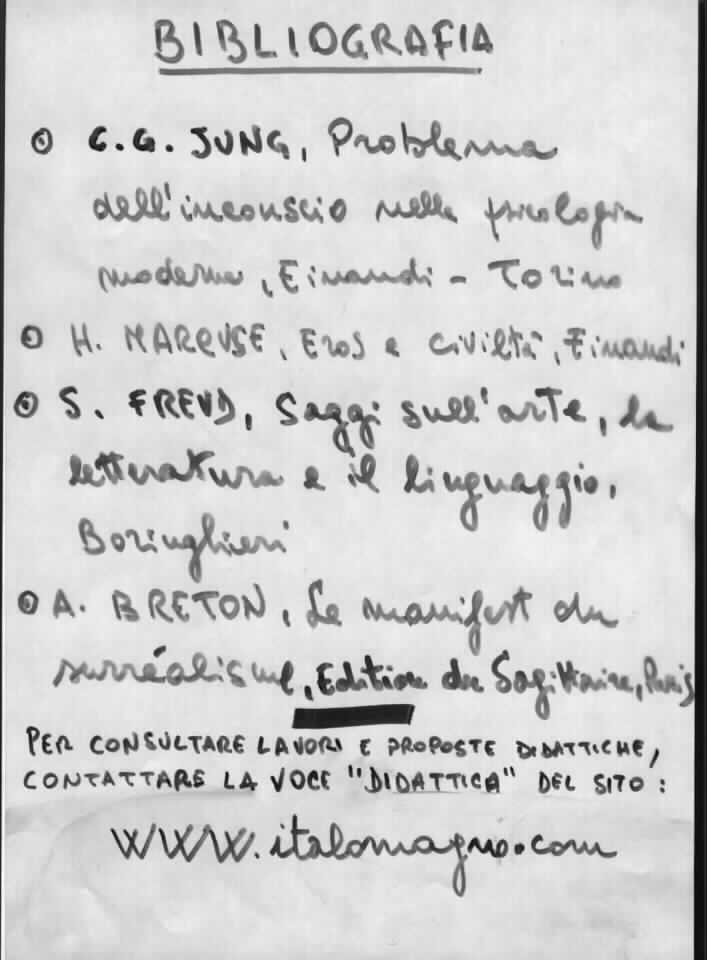 BIBLIOGRAFIA
C.G. JUNG, Problema
dell'inconscio nella psicologia
moderna, Einaudi - Torino
H. MARCUSE, Eros e civiltà, Einaudi
S. FREUD, Saggi sull'arte, la
letteratura e il linguaggio,
Boringhieri
A. BRETON, Le manifest du
surréalisme, Edition du Sagittaire, Paris
PER CONSULTARE LAVORI E PROPOSTE DIDATTICHE,
CONTATTARE LA VOCE "DIDATTICA" DEL SITO:
WWW.italomagno.com